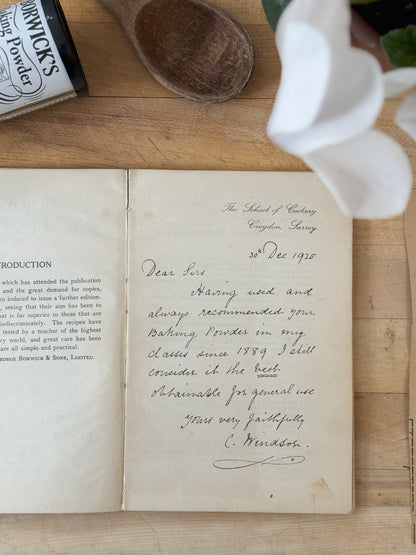 ORWICK'S
king Powder
RODUCTION
which has attended the publication
and the great demand for copies,
n induced to issue a further edition.
, seeing that their aim has been to
at is far superior to those that are
indiscriminately. The recipes have
tested by a teacher of the highest
ry world, and great care has been
are all simple and practical.
EORGE BORWICK & SONS, LIMITED.
The School of Cookery
Croydon, Surrey
30th Dec 1920
Dear Sirs
Having used and
always recommended your
Baking Powder in my
classes since 1889 I still
consider it the best
obtainable for general use
yours very faithfully
C. Windsor.